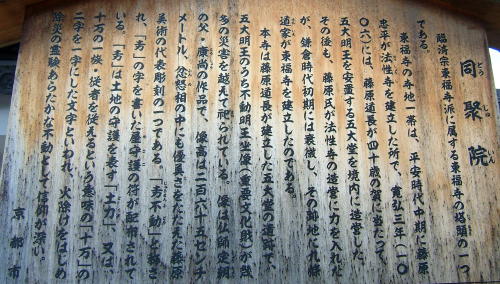 どう しゅ いん
同聚院
臨済宗東福寺派に属する東福寺の塔頭の一つ
である。
東福寺の寺地一帯は、平安時代中期に藤原
忠平が法性寺を建立した所で、寛弘三年(一〇
〇六)には、藤原道長が四十歳の賀に当たって、
五大明王を安置する五大堂を境内に造営した。
その後も、藤原氏が法性寺の造営に力を入れた
が、鎌倉時代初期には衰微し、その跡地に九條
道家が東福寺を建立したのである。
本寺は藤原道長が建立した五大堂の遺跡で、
五大明王のうち不動明王坐像(重要文化財)が幾
多の災害を越えて祀られている。像は仏師定朝
の父・康尚の作品で、像高は二百六十五センチ
メートル、忿怒相の中にも優美さをたたえた藤原
美術の代表彫刻の一つである。「𡈽不動」と称さ
れ、「𡈽」の字を書いた屋守護の符が配布されて
いる。「𡈽」は土地の守護を表す「土力」、又は、
十万の一族・従者を従えるという意味の「十万」の
二字を一字にした文字といわれ、火除けをはじめ
除災の霊験あらたかな不動として信仰が深い。
京都市